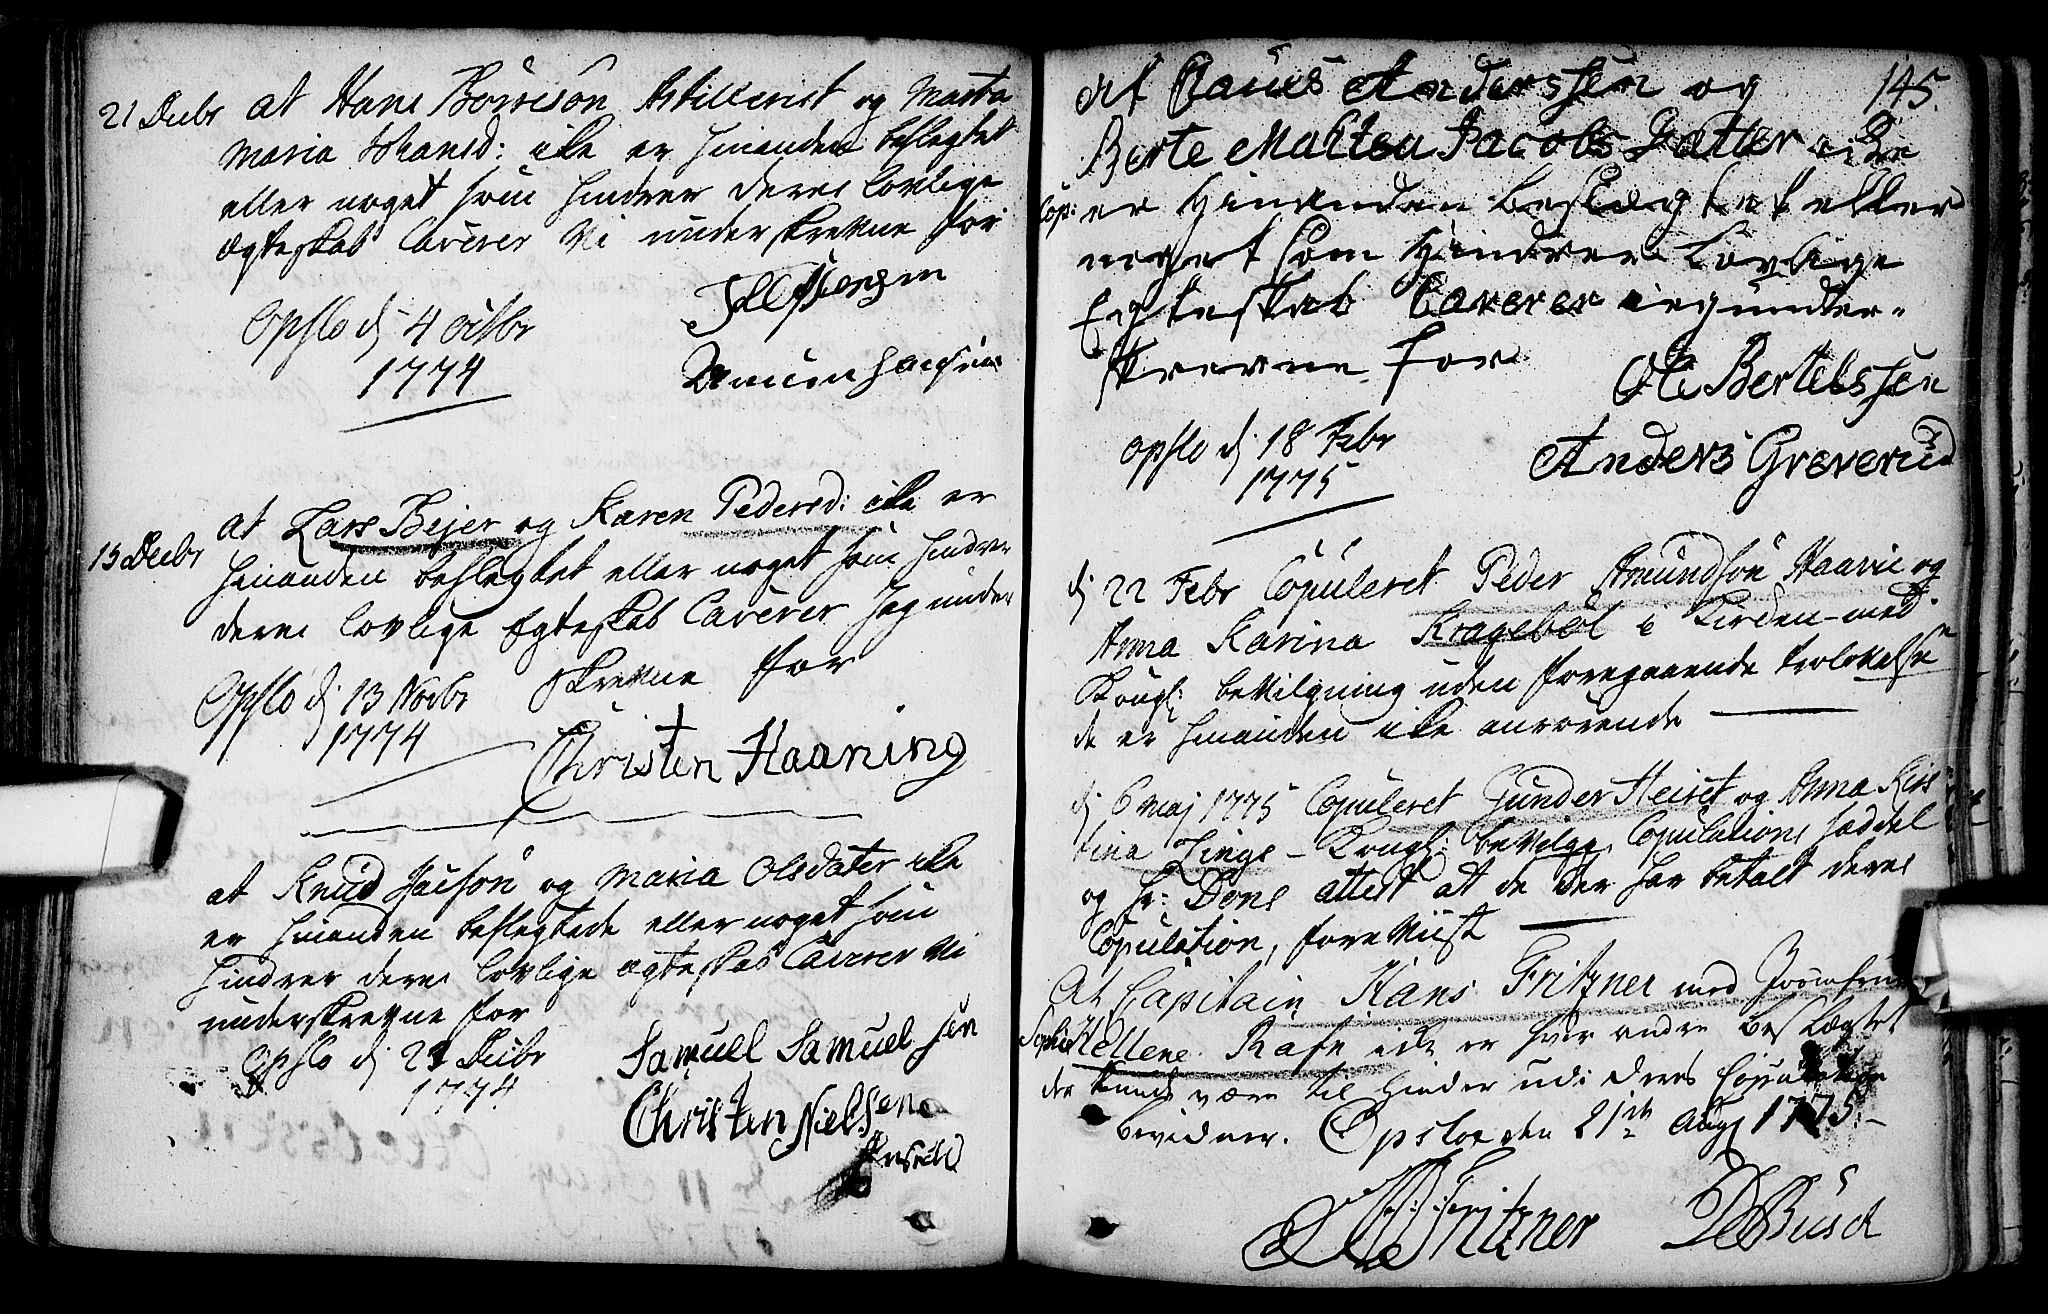 21 Decbr at Hans Börreson Artillerist og Marta
Maria Johansd: ike er hinanden beslegtet
eller noget som hindrer deres lovlige
ægteskab Caverer Vi underskrevne for
Opslo d 4 octbr
1774
15 Decbr at Lars Bejer og Karen Pedersd: ike er
hinanden beslegtet eller noget som hindrer
deres lovlige Egteskab Caverer Jeg under
skrevne for
Opslo d 13 Novbr
1774
Christen Haaning
at Knud og Maria Olsdater ike
er hinanden beslegtede eller noget som
hindrer deres lovlige ægteskab Caverer Vi
underskrevne for
Opslo d 29 Decbr
1774
Samuel Samuelsen
Christen Nielsen
145.
At Claus Anderssen og
Berte Malten Jacobs Datter eike
Cop: er Hinanden beslægtet eller
noget som Hindrer Lovlige
Egteskab Caverer under-
skrevne for
Ole Bertelssen
Anders Greverud
Opslo d 18 Febr
1775
d 22 Febr Copuleret Peder Amundsön Haavie og
Anna Karina Kragebøl i Kirken med
Kongl: bevilgning uden foregaaende trolovelse
de er hinanden ike anrörende
d 6 maj 1775 Copuleret Gunder Heiret og Anna Kirs
tina Linge - Kongl: bevilge Copulations saddel
og Hr: Dons attest at de der har betalt deres
Copulation, foreviist
At Capitain Hans Fritzner med Jomfrue
Sophie Hellene Rafn ike er hver andre beslægtet
der kunde være til Hinder udi deres Copulation
bevidner. Opsloe den 21de Aug 1775 -
Fritzner
Busch